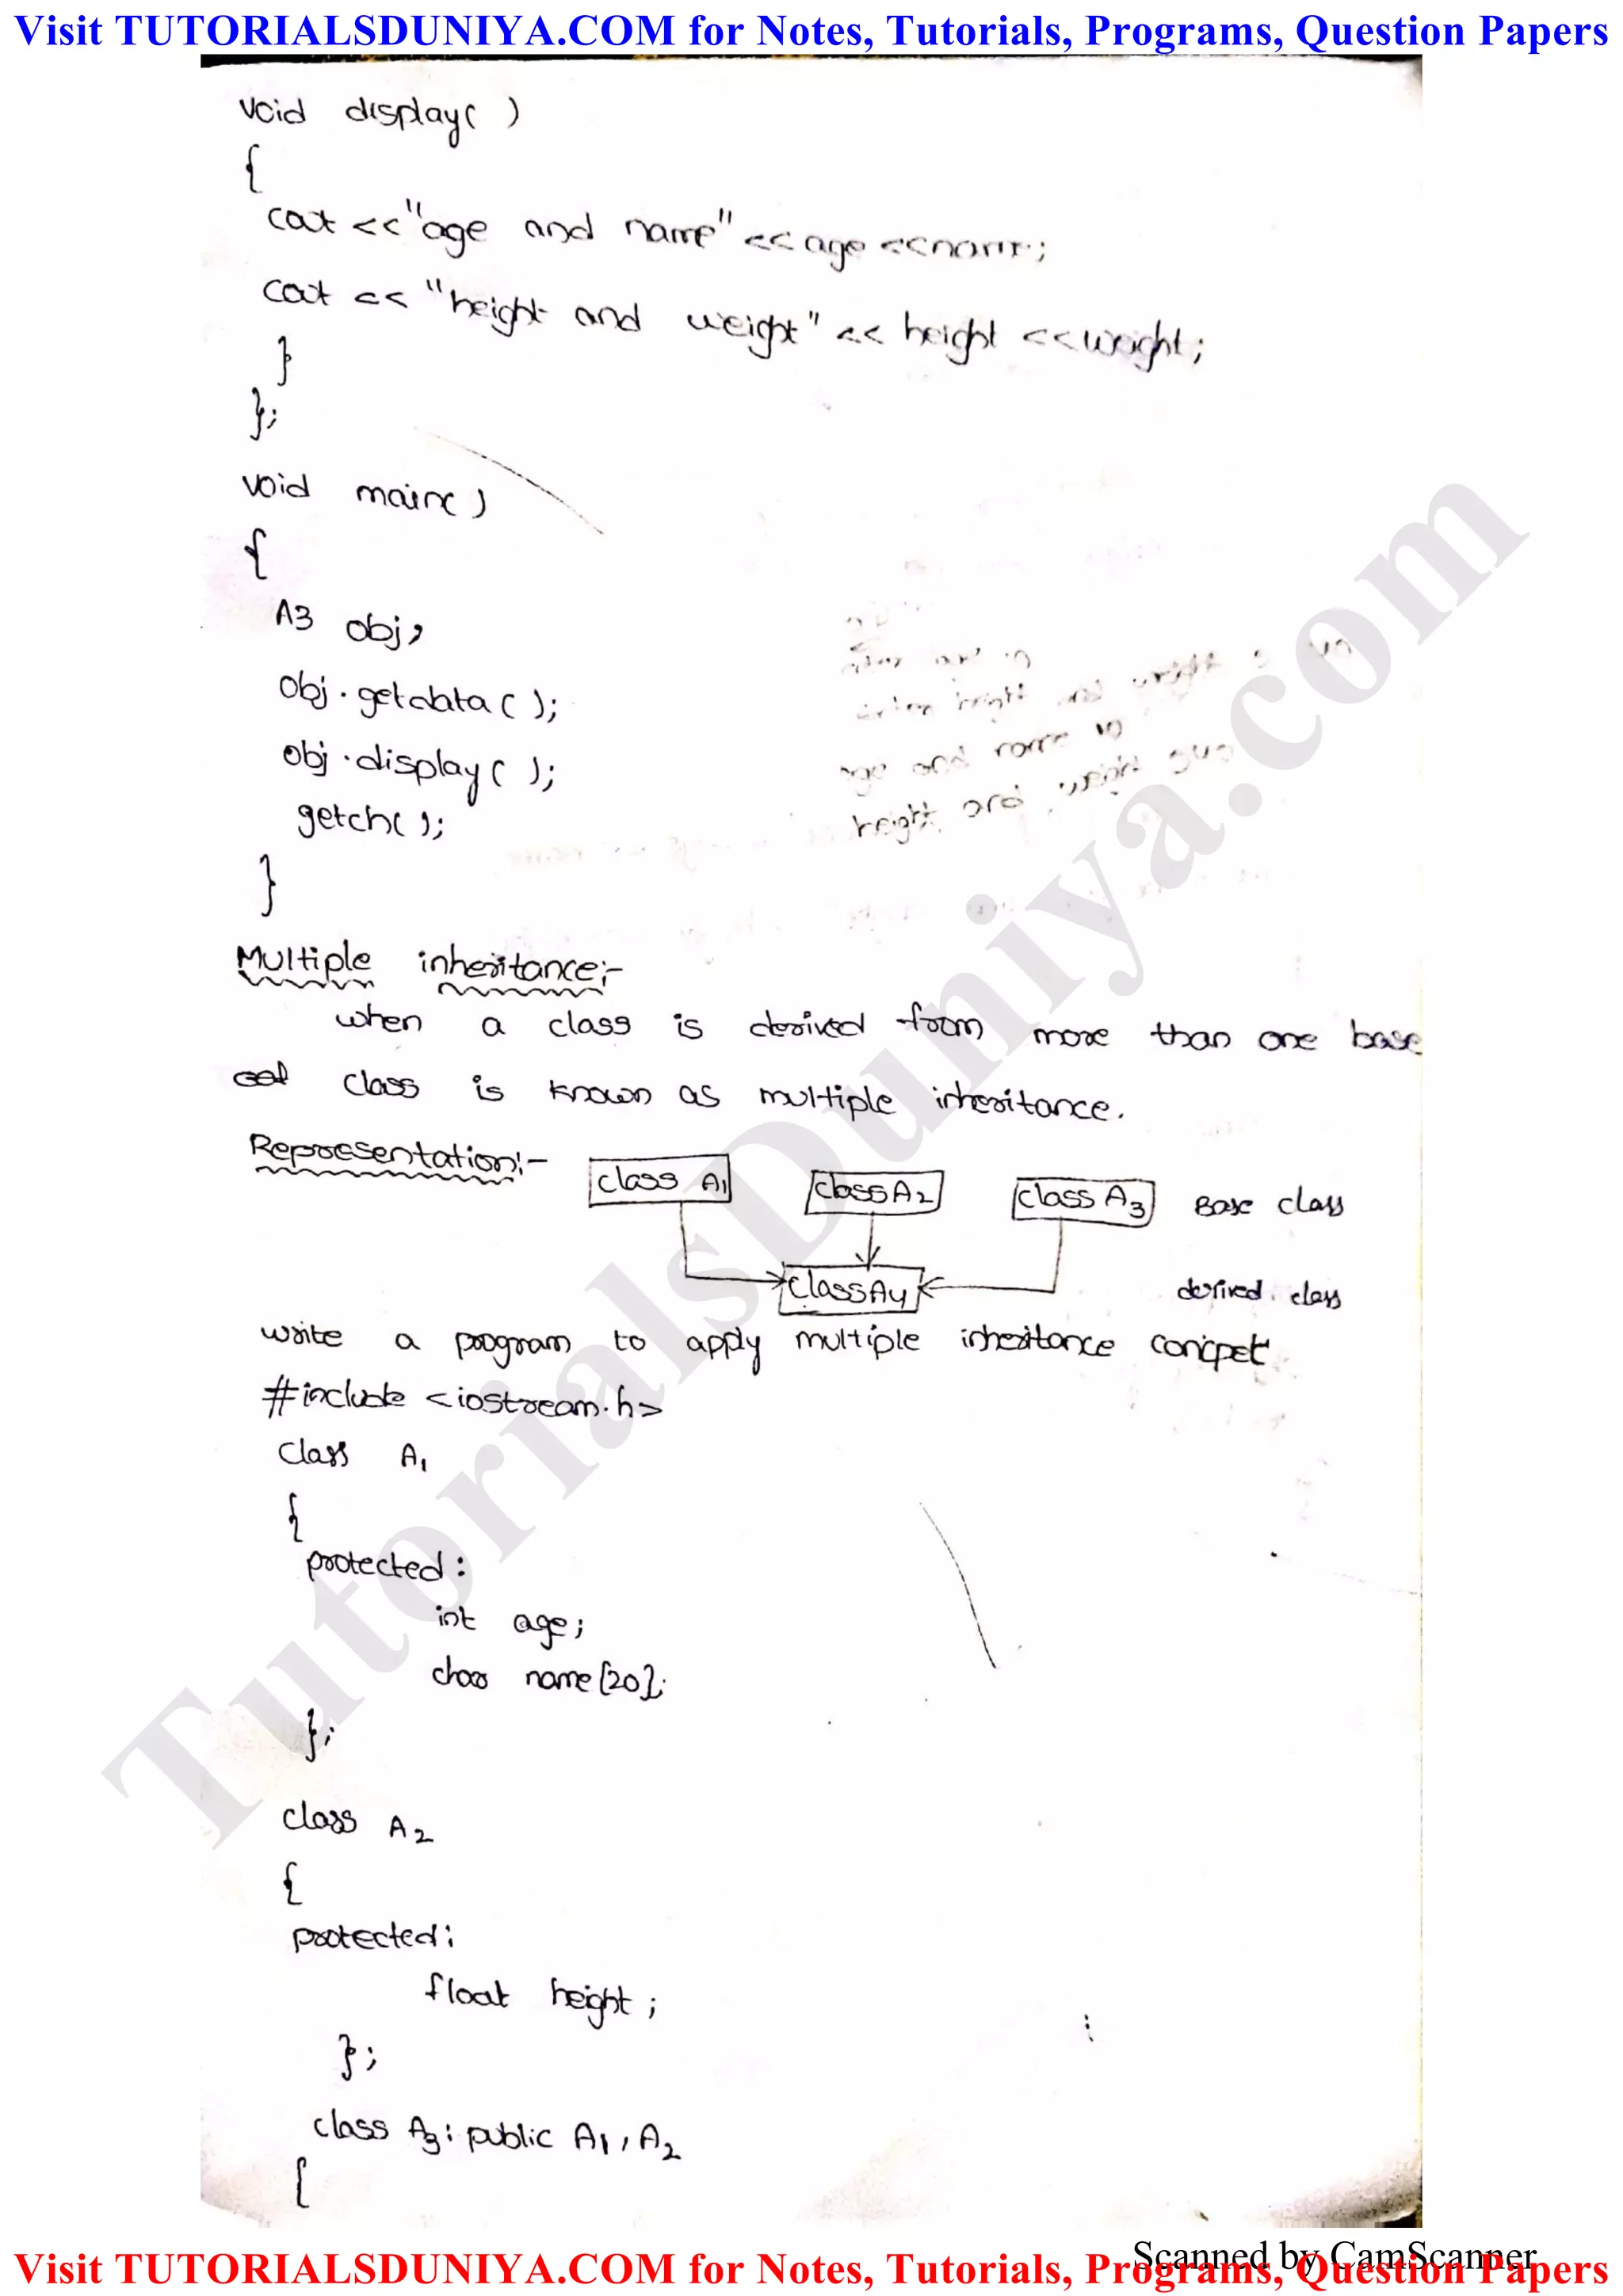 Visit TUTORIALSDUNIYA.COM for Notes, Tutorials, Programs, Question Papers
void display( )
{
cout <<"age and name"<<age<<name;
cout << "height and weight" << height <<weight;
}
};
void main( )
{
A3 obj;
obj.getdata( );
obj.display( );
getch( );
}
height and weight
age and name
height and weight
Multiple inheritance:-
when a class is derived from more than one base
class is known as multiple inheritance.
Representation:-
class A1 class A2 class A3 Base class
class A4 derived class
write a program to apply multiple inheritance conicpet
#include <iostream.h>
class A1
{
protected:
int age;
char name[20];
};
class A2
{
protected:
float height;
};
class A3: public A1, A2
{
TutorialsDuniya.com
Scanned by CamScanner
Visit TUTORIALSDUNIYA.COM for Notes, Tutorials, Programs, Question Papers